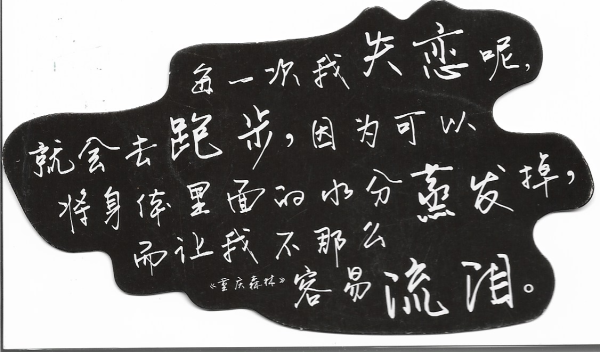 每一次我失恋呢，
就会去跑步，因为可以
将身体里面的水分蒸发掉，
而让我不那么
《重庆森林》容易流泪。